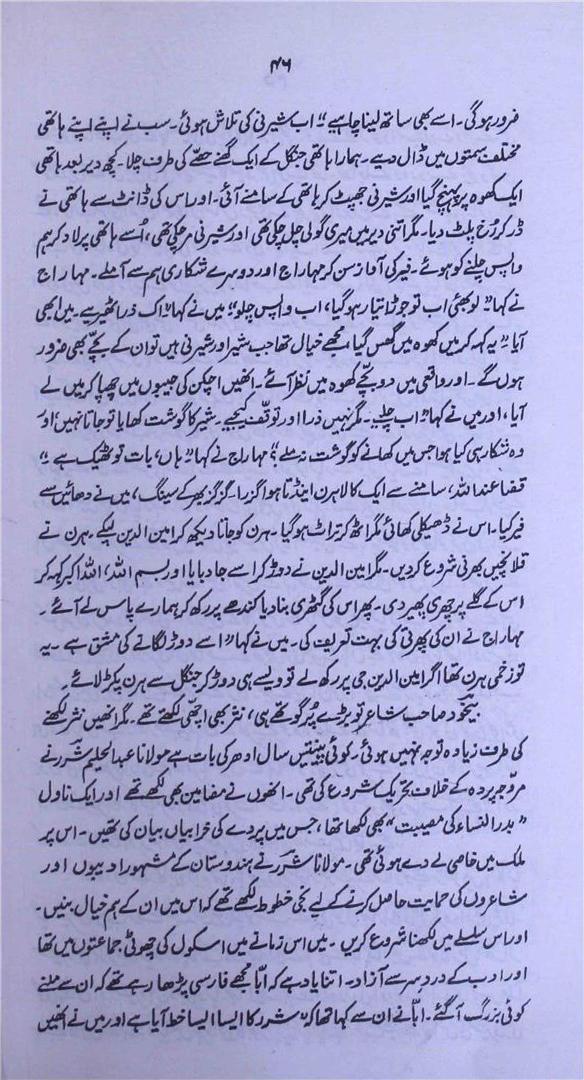 ۴۶
ضرور ہوگی۔ اسے بھی ساتھ لینا چاہیے" اب شیرنی کی تلاش ہوئی۔ سب نے اپنے اپنے ہاتھی
مختلف سمتوں میں ڈال دیے۔ ہمارا ہاتھی جنگل کے ایک گھنے حصّے کی طرف چلا۔ کچھ دیر بعد ہاتھی
ایک کھوہ پر پہنچ گیا اور شیرنی جھپٹ کر ہاتھی کے سامنے آئی۔ اور اس کی ڈانٹ سے ہاتھی نے
ڈر کر رُخ پلٹ دیا۔ مگر اتنی دیر میں میری گولی چل چکی تھی اور شیرنی مر چکی تھی، اُسے ہاتھی پر لاد کر ہم
واپس چلنے کو ہوئے۔ فیر کی آواز سن کر مہاراج اور دوسرے شکاری ہم سے آملے۔ مہاراج
نے کہا "لو بھئی اب تو جوڑا تیار ہوگیا، اب واپس چلو" میں نے کہا "اک ذرا ٹھیریے۔ میں ابھی
آیا" یہ کہہ کر میں کھوہ میں گھس گیا، مجھے خیال تھا جب شیر اور شیرنی ہیں تو ان کے بچّے بھی ضرور
ہوں گے۔ اور واقعی میں دو بچّے کھوہ میں نظر آئے۔ انھیں اچکن کی جیبوں میں چھپا کر میں لے
آیا، اور میں نے کہا "اب چلیے۔ مگر نہیں ذرا اور توقّف کیجیے۔ شیر کا گوشت کھایا تو جاتا نہیں، اور
وہ شکار ہی کیا ہوا جس میں کھانے کو گوشت نہ ملے؟" مہاراج نے کہا "ہاں، بات تو ٹھیک ہے"
قضا عنداللہ، سامنے سے ایک کالا ہرن اینڈتا ہوا گزرا۔ گز گز بھر کے سینگ، میں نے دھائیں سے
فیر کیا۔ اس نے ڈھیکلی کھائی مگر اٹھ کر تراٹ ہوگیا۔ ہرن کو جاتا دیکھ کر امین الدین لپکے۔ ہرن نے
قلانچیں بھرنی شروع کر دیں۔ مگر امین الدین نے دوڑ کر اسے جا دبایا اور بسم اللہ، اللہ اکبر کہہ کر
اس کے گلے پر چھری پھیر دی۔ پھر اس کی گٹھری بنا دیا کندھے پر رکھ کر ہمارے پاس لے آئے۔
مہاراج نے ان کی پھرتی کی بہت تعریف کی۔ میں نے کہا "اسے دوڑ لگانے کی مشق ہے۔ یہ
تو زخمی ہرن تھا اگر امین الدین جی پر رکھ لے تو ویسے ہی دوڑ کر جنگل سے ہرن پکڑ لائے۔
بیخود صاحب شاعر تو بڑے پُرگو تھے ہی، نثر بھی اچھی لکھتے تھے۔ مگر انھیں نثر لکھنے
کی طرف زیادہ توجہ نہیں ہوئی۔ کوئی پینتیس سال ادھر کی بات ہے مولانا عبدالحلیم شرر نے
مروّجہ پردہ کے خلاف تحریک شروع کی تھی۔ انھوں نے مضامین بھی لکھے تھے اور ایک ناول
"بدر النساء کی مصیبت" بھی لکھا تھا، جس میں پردے کی خرابیاں بیان کی تھیں۔ اس پر
ملک میں خاصی لے دے ہوئی تھی۔ مولانا شرر نے ہندوستان کے مشہور ادیبوں اور
شاعروں کی حمایت حاصل کرنے کے لیے نجی خطوط لکھے تھے کہ اس میں ان کے ہم خیال بنیں۔
اور اس سلسلے میں لکھنا شروع کریں۔ میں اس زمانے میں اسکول کی چھوٹی جماعتوں میں تھا
اور ادب کے درد سر سے آزاد۔ اتنا یاد ہے کہ ابّا مجھے فارسی پڑھا رہے تھے کہ ان سے ملنے
کوئی بزرگ آگئے۔ ابّا نے ان سے کہا تھا کہ "شرر کا ایسا ایسا خط آیا ہے اور میں نے انھیں